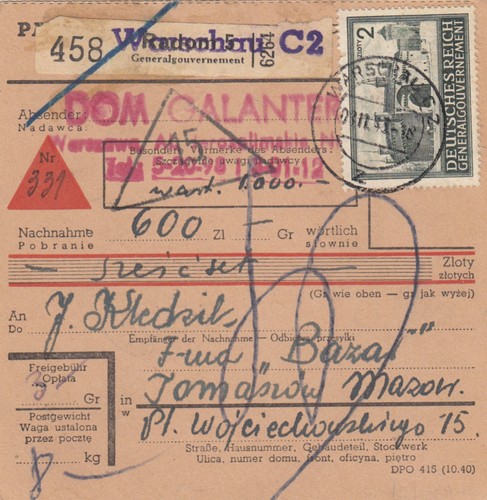 458
Warschau C2
Radom 5
Generalgouvernement
6264
2
DEUTSCHES REICH
GENERALGOUVERNEMENT
WARSCHAU C2
Absender:
Nadawca:
DOM GALANTER
Warszawa
15
Besondere Vermerke des Absenders:
Szczególne uwagi nadawcy
wart. 1000.-
Nr
331
Nachnahme 600 Zl — Gr wörtlich
Pobranie słownie
— sześćset — Złoty
złotych
(Gr wie oben — gr jak wyżej)
An
Do
J. Kłedzik
Empfänger der Nachnahme — Odbiorca przesyłki
F-ma "Bazar"
Freigebühr
Opłata
3 Gr
Tomaszów Mazow.
Postgewicht
Waga ustalona
przez pocztę
in
w
Pl. Wojciechowskiego 15.
8 — kg
Straße, Hausnummer, Gebäudeteil, Stockwerk
Ulica, numer domu, front, oficyna, piętro
DPO 415 (10.40)